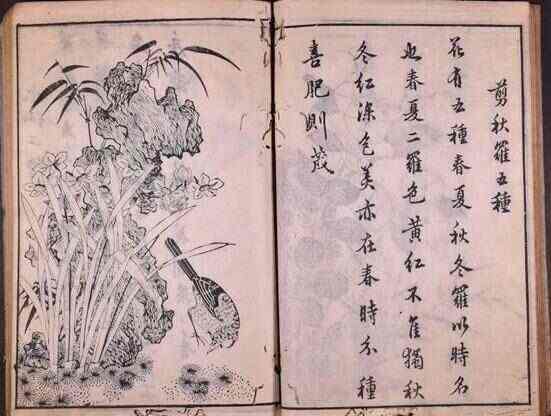 剪秋羅五種
花有五種春夏秋冬羅以時名
也春夏二羅色黃紅不佳獨秋
冬紅深色美亦在春時分種
喜肥則茂